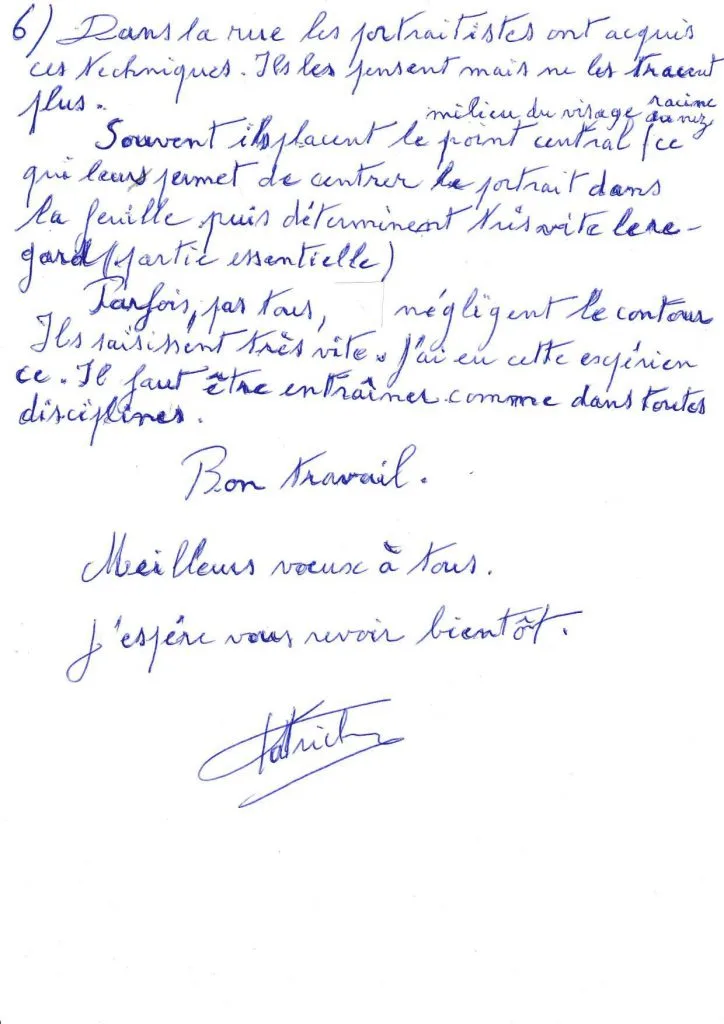 6) Dans la rue les portraitistes ont acquis
ces techniques. Ils les pensent mais ne les tracent
plus.
milieu du visage racine
du nez
Souvent ils placent le point central (ce
qui leurs permet de centrer le portrait dans
la feuille puis déterminent très vite le re-
gard (partie essentielle)
Parfois, pas tous, négligent le contour
Ils saisissent très vite. J'ai eu cette expérien
ce. Il faut être entraîner comme dans toutes
disciplines.
Bon travail.
Meilleurs voeux à tous.
J'espère vous revoir bientôt.
Patrick